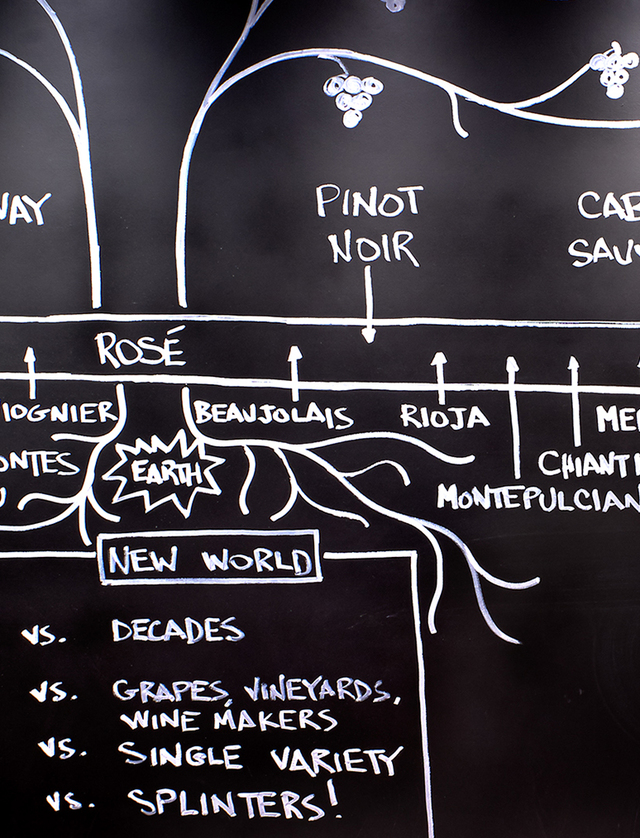 WAY
PINOT
NOIR
CAB
SAUV
ROSÉ
IOGNIER
BEAUJOLAIS
RIOJA
MER
ONTES
EARTH
CHIANTI
MONTEPULCIAN
NEW WORLD
vs. DECADES
vs. GRAPES, VINEYARDS,
WINE MAKERS
vs. SINGLE VARIETY
vs. SPLINTERS!